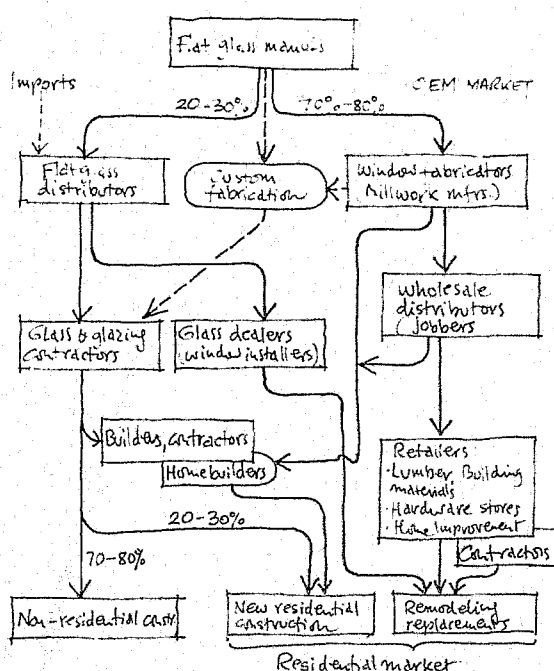 Flat glass manufs
Imports
20-30%
70%-80%
OEM MARKET
Flat glass
distributors
Custom
fabrication
Window fabricators
Millwork mfrs.)
Wholesale
distributors
(Jobbers
Glass & glazing
contractors
Glass dealers
(window installers)
Builders, contractors
Homebuilders
Retailers:
·Lumber, Building
materials
·Hardware stores
·Home Improvement
Contractors
20-30%
70-80%
Non-residential constr.
New residential
construction
Remodeling
replacements
Residential market